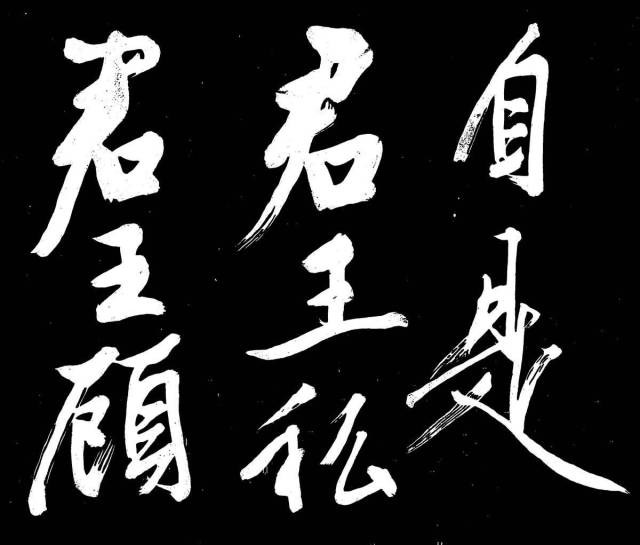 自是
君王私
君王顾